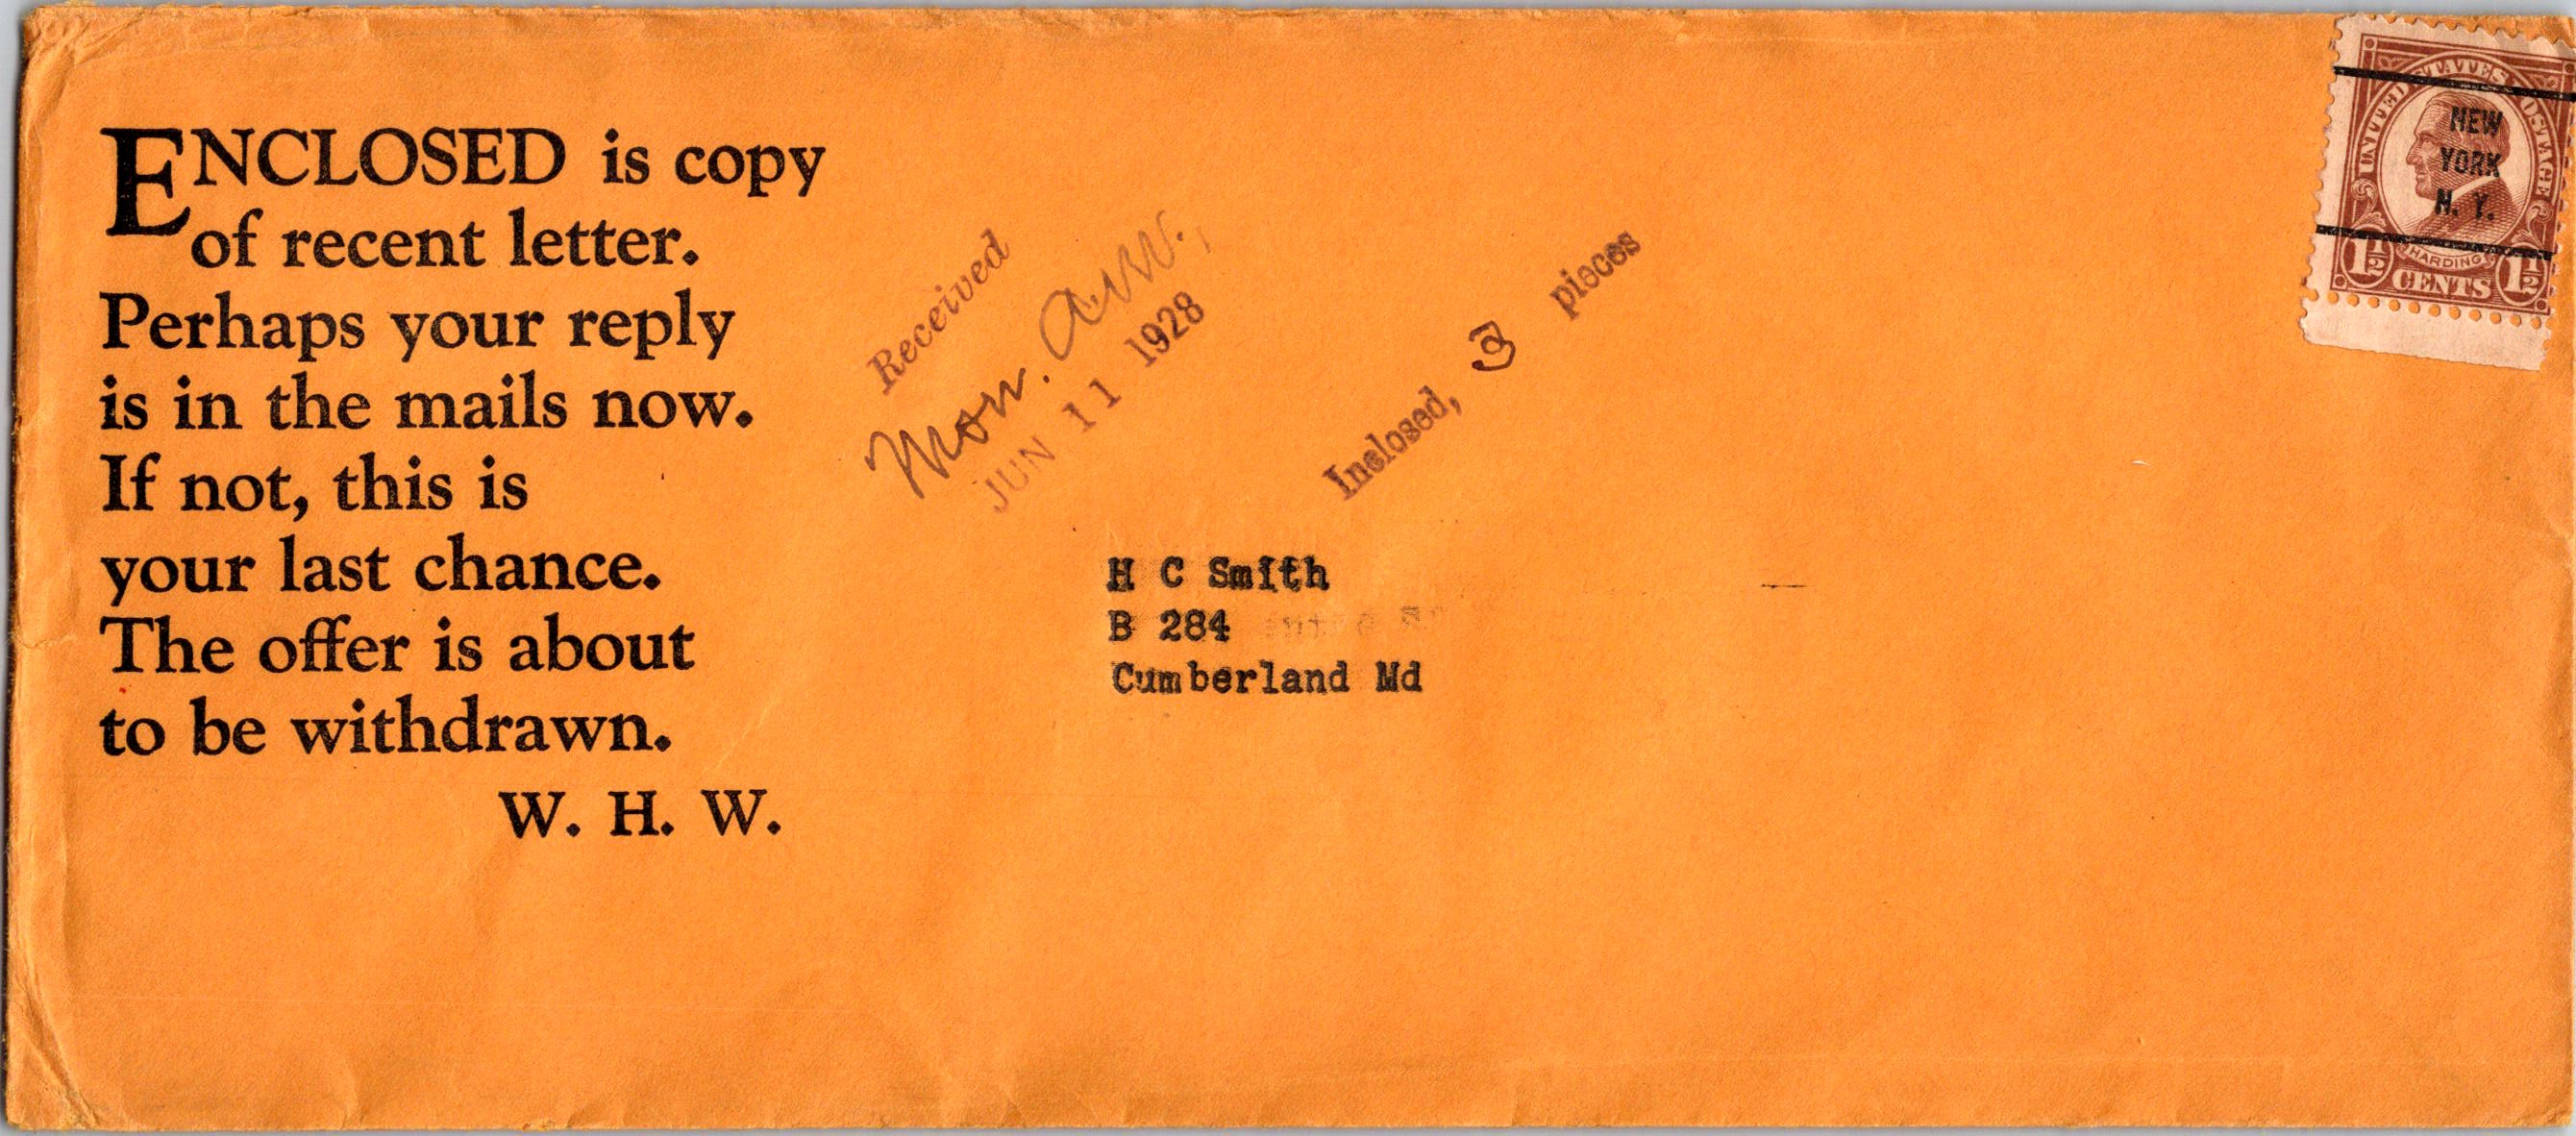 ENCLOSED is copy
of recent letter.
Perhaps your reply
is in the mails now.
If not, this is
your last chance.
The offer is about
to be withdrawn.
W. H. W.
Received
Mon. a.m.,
JUN 11 1928
Inclosed, 3 pieces
H C Smith
B 284
Cumberland Md
UNITED STATES POSTAGE
NEW
YORK
N. Y.
HARDING
1½ CENTS 1½